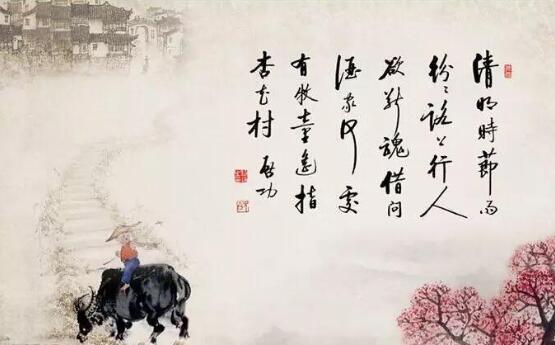 清明時節雨
紛〻路上行人
欲断魂借问
酒家何處
有牧童遙指
杏花村 啟功